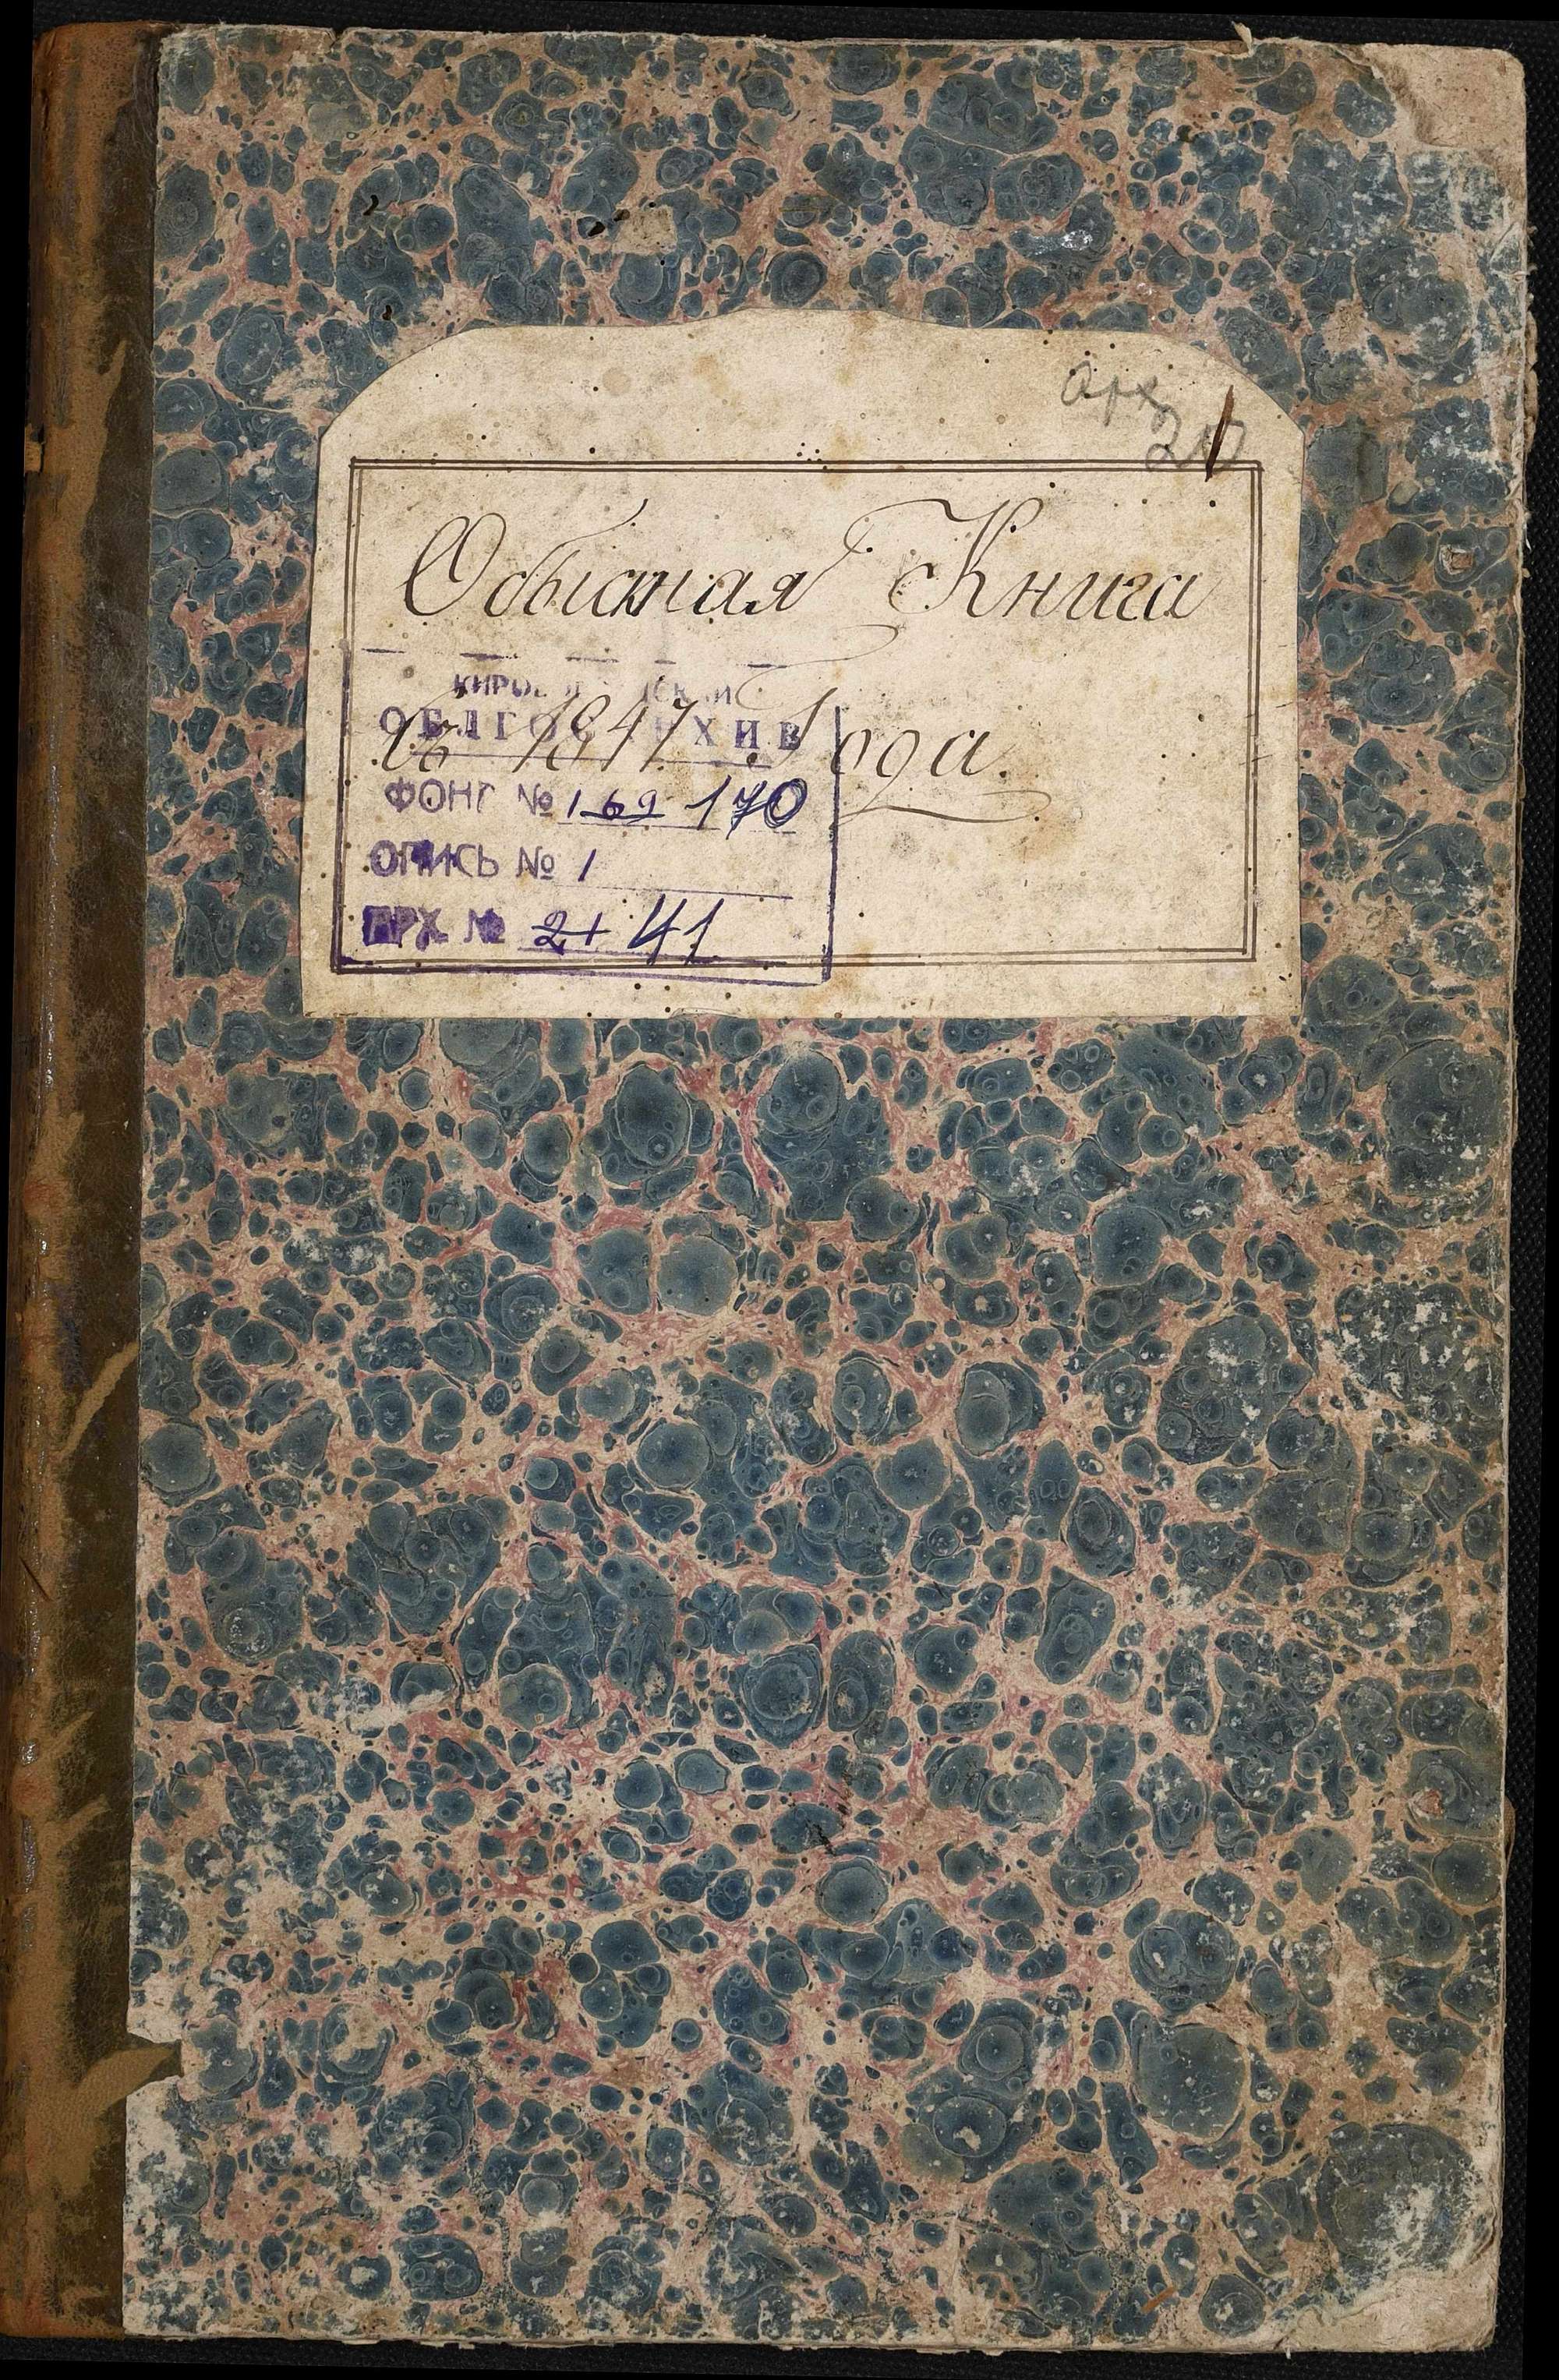 Арх
20
Обыскная Книга
Съ 1847 Года.
ОБЛГОСАРХИВ
ФОНД № 169 170
ОПИСЬ № 1
АРХ. № 21 41